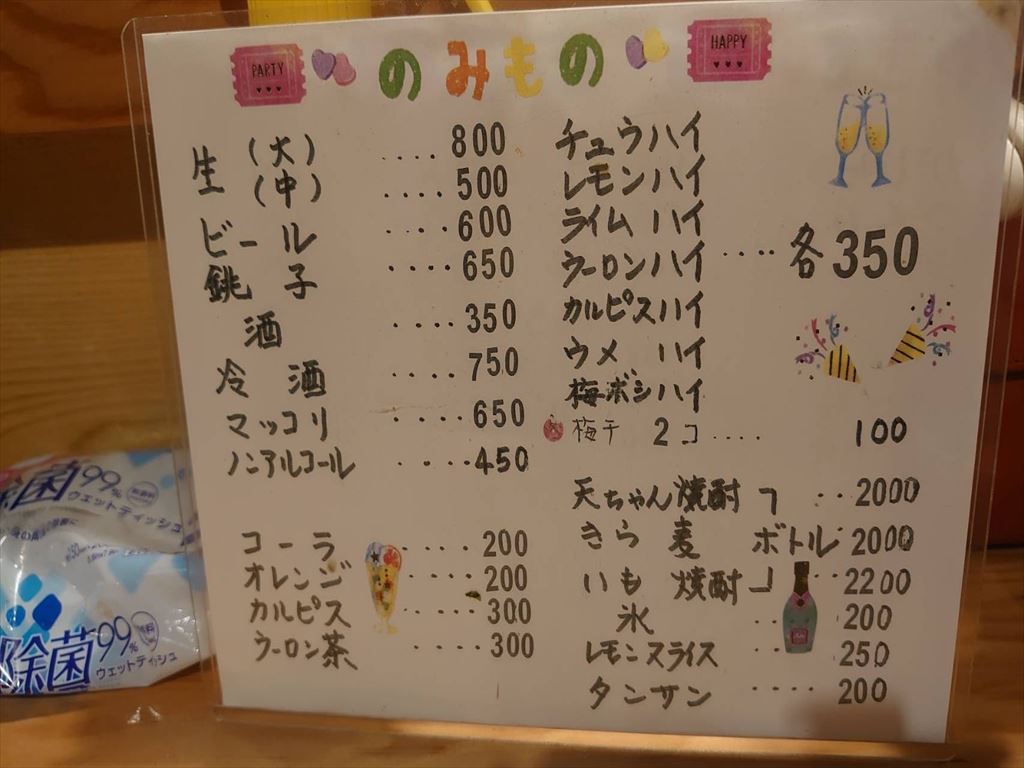 PARTY
のみもの
HAPPY
生 (大) .... 800
(中) .... 500
ビール .... 600
銚子 .... 650
酒 .... 350
冷酒 .... 750
マッコリ .... 650
ノンアルコール .... 450
コーラ .... 200
オレンジ .... 200
カルピス .... 300
ウーロン茶 .... 300
チュウハイ
レモンハイ
ライムハイ
ウーロンハイ .... 各350
カルピスハイ
ウメハイ
梅ボシハイ
梅干 2コ .... 100
天ちゃん焼酎 ┐ .. 2000
きら麦 ボトル 2000
いも焼酎 ┘ .. 2200
氷 .. 200
レモンスライス .. 250
タンサン .... 200
除菌99%
ウェットティッシュ
除菌99%
ウェットティッシュ